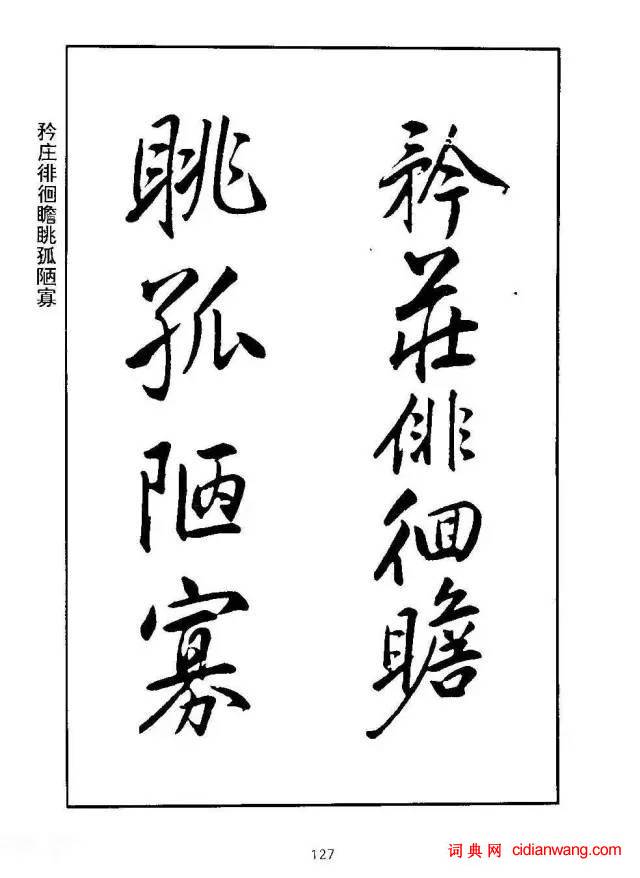 矜莊俳徊瞻
眺孤陋寡
矜庄徘徊瞻眺孤陋寡
127
词典网 cidianwang.com